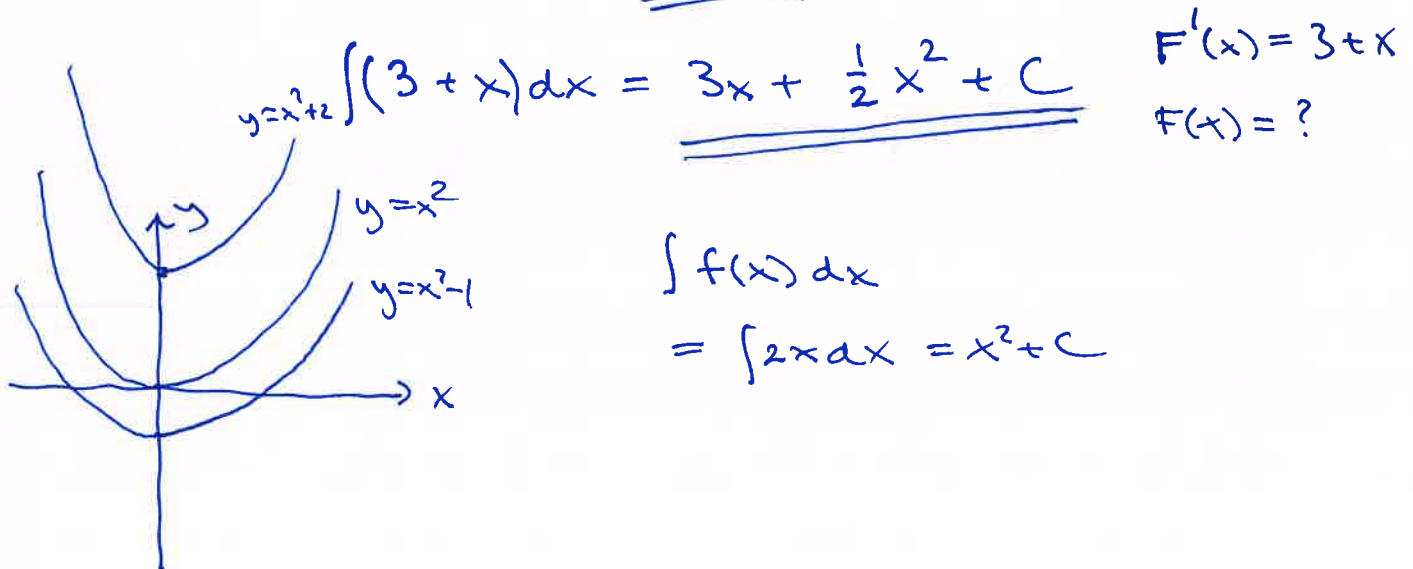 ∫(3 + x)dx = 3x + ½ x² + C
F'(x) = 3 + x
F(x) = ?
y=x²+2
y
y=x²
y=x²-1
x
∫ f(x) dx
= ∫2x dx = x² + C